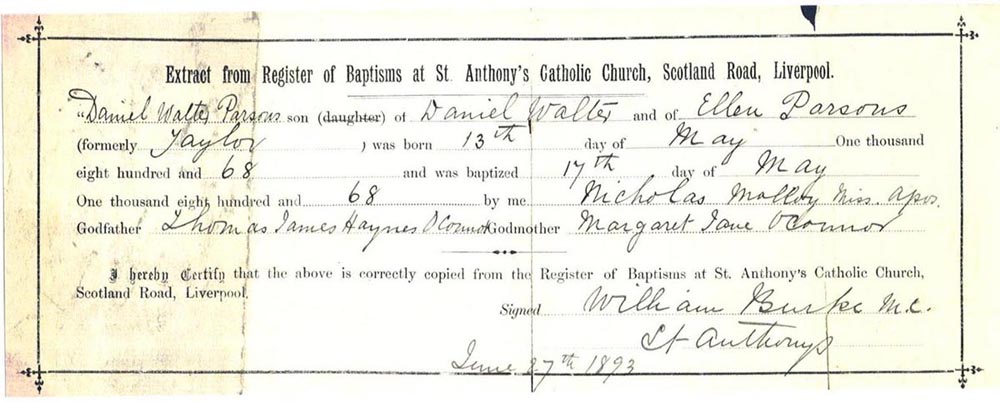 Extract from Register of Baptisms at St. Anthony's Catholic Church, Scotland Road, Liverpool.
"Daniel Walter Parsons son (daughter) of Daniel Walter and of Ellen Parsons
(formerly Taylor ) was born 13th day of May One thousand
eight hundred and 68 and was baptized 17th day of May
One thousand eight hundred and 68 by me Nicholas Molloy Miss. Apos.
Godfather Thomas James Haynes O'Connor Godmother Margaret Jane O'Connor
I hereby Certify that the above is correctly copied from the Register of Baptisms at St. Anthony's Catholic Church,
Scotland Road, Liverpool.
Signed William Burke M.C.
St Anthonys
June 27th 1893